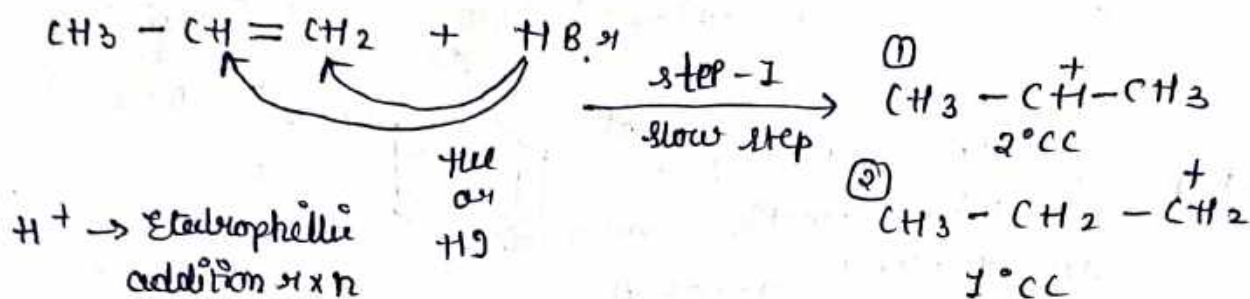 CH3 - CH = CH2 + HBr
step-I
slow step
①
CH3 - CH - CH3
+
2°CC
②
CH3 - CH2 - CH2
+
1°CC
HCl
or
HI
H+ → Electrophillic
addition rxn